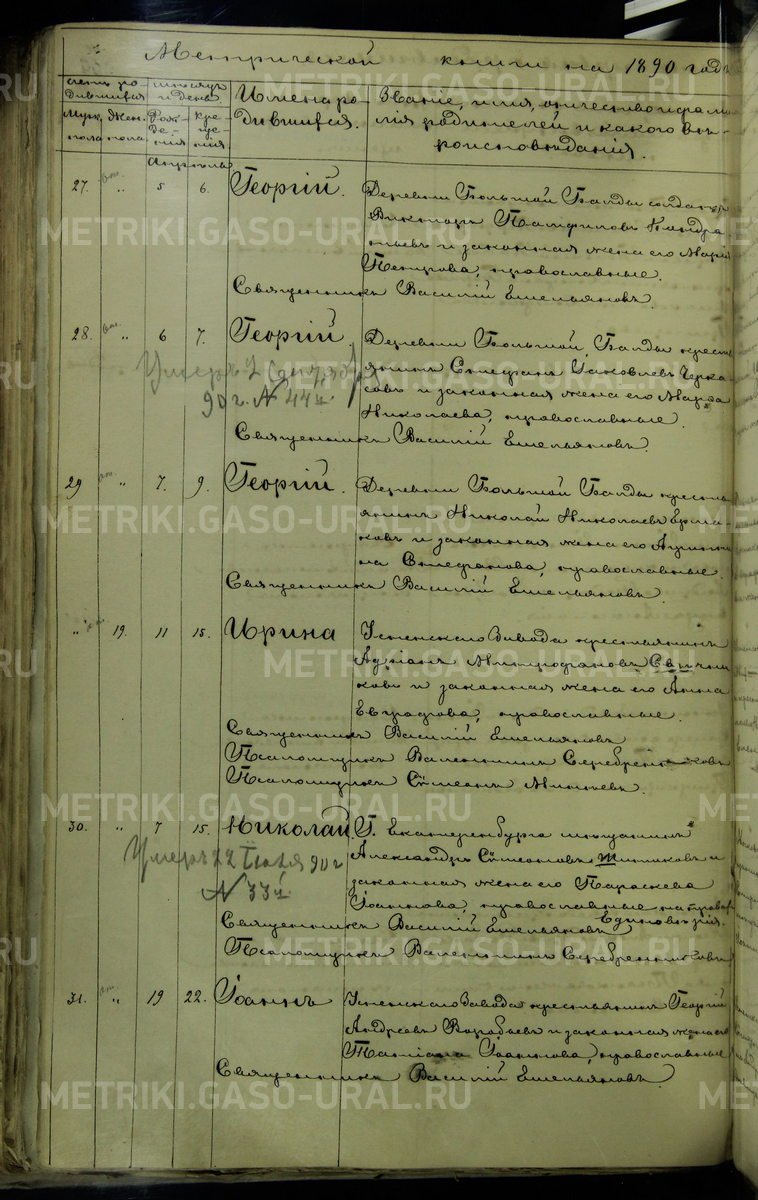 Метрической книги на 1890 годъ
Счетъ ро-
дившихся
мѣсяцъ
и день
Имена ро-
дившихся.
Званіе, имя, отчество и фами-
лія родителей и какого вѣ-
роисповѣданія.
Муж.
пола
Жен.
пола
Рож-
де-
нія
кре-
ще-
нія
Апрѣль
27. „ 5 6. Георгій. Деревни Большой Балды солдатъ
Викторъ Памфиловъ Кондра-
тьевъ и законная жена его Марія
Петрова, православные.
Священникъ Василій Емельяновъ.
28. „ 6 7. Георгій. Деревни Большой Балды кресть-
янинъ Стефанъ Іаковлевъ Черка-
совъ и законная жена его Марѳа
Николаева, православные.
Умеръ 2
90 г. № 44й
Священникъ Василій Емельяновъ.
29 „ 7. 9. Георгій. Деревни Большой Балды кресть-
янинъ Николай Николаевъ Ерма-
ковъ и законная жена его
Стефанова, православные.
Священникъ Василій Емельяновъ.
„ 19. 11 15. Ирина Успенскаго Завода крестьянинъ
Адріанъ Митрофановъ Свични-
ковъ и законная жена его Анна
Евграфова, православные.
Священникъ Василій Емельяновъ
Псаломщикъ Валентинъ Серебренниковъ
Псаломщикъ Сѵмеонъ Минѣевъ.
30. „ 7 15. Николай. Г. Екатеринбурга мѣщанинъ
Александръ Сѵмеоновъ и
законная жена его Параскева
Іоаннова, православные на правах
Единовѣрія.
Умеръ 22 Іюля 90 г
№ 33й
Священникъ Василій Емельяновъ
Псаломщикъ Валентинъ Серебренниковъ
31. „ 19 22. Іоаннъ Успенскаго Завода крестьянинъ Георгій
Андреевъ Воробьевъ и законная жена его
Татіана Іоаннова, православные
Священникъ Василій Емельяновъ
METRIKI.GASO-URAL.RU